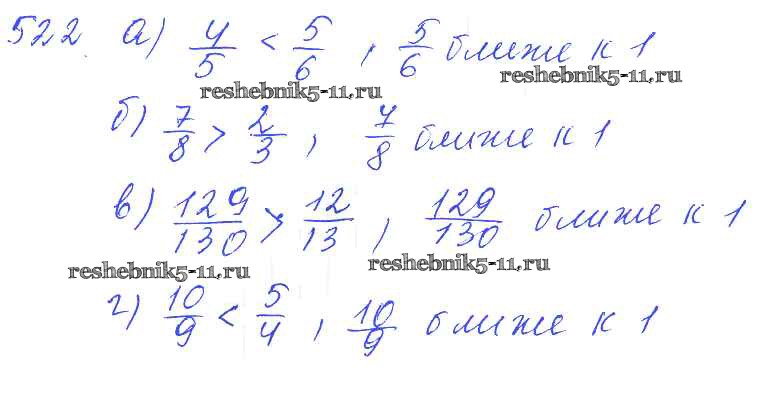 522. а) 4/5 < 5/6, 5/6 ближе к 1
reshebnik5-11.ru reshebnik5-11.ru
б) 7/8 > 2/3, 7/8 ближе к 1
в) 129/130 > 12/13, 129/130 ближе к 1
reshebnik5-11.ru reshebnik5-11.ru
г) 10/9 < 5/4, 10/9 ближе к 1